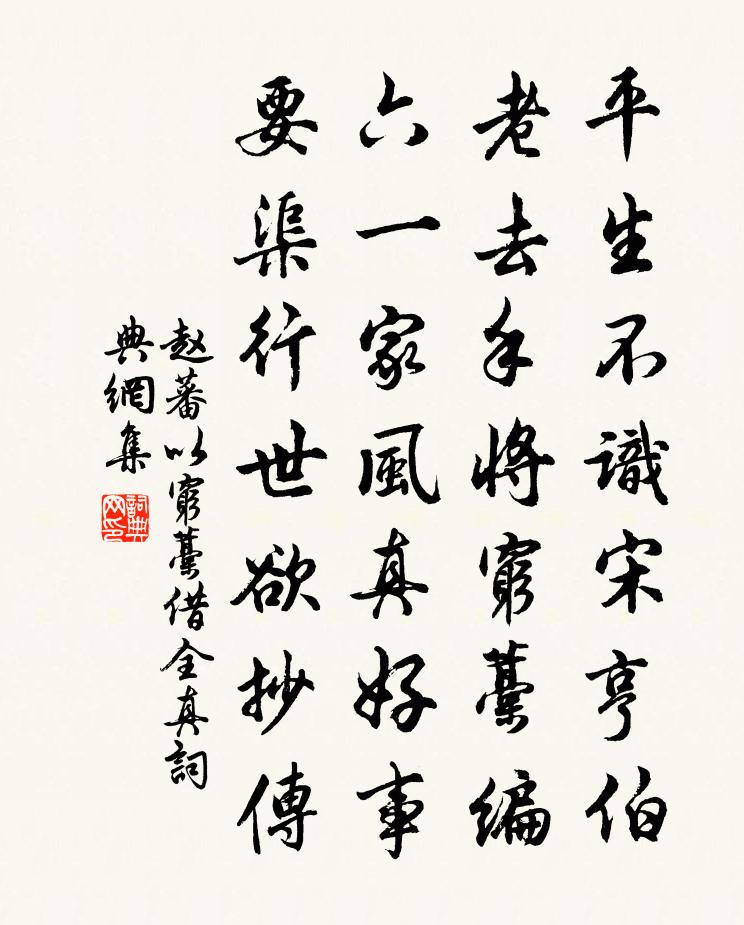 平生不識宋亨伯
老去手將窮藁編
六一家風真好事
要渠行世欲抄傳
赵蕃以窮藁借全真詞
典網集
詞典
网印